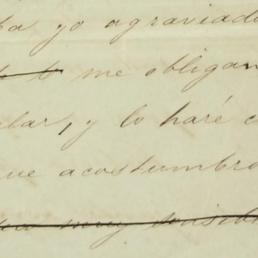 ba yo agraviado
me obligan
lar, y lo haré c
ue acostumbro
muy